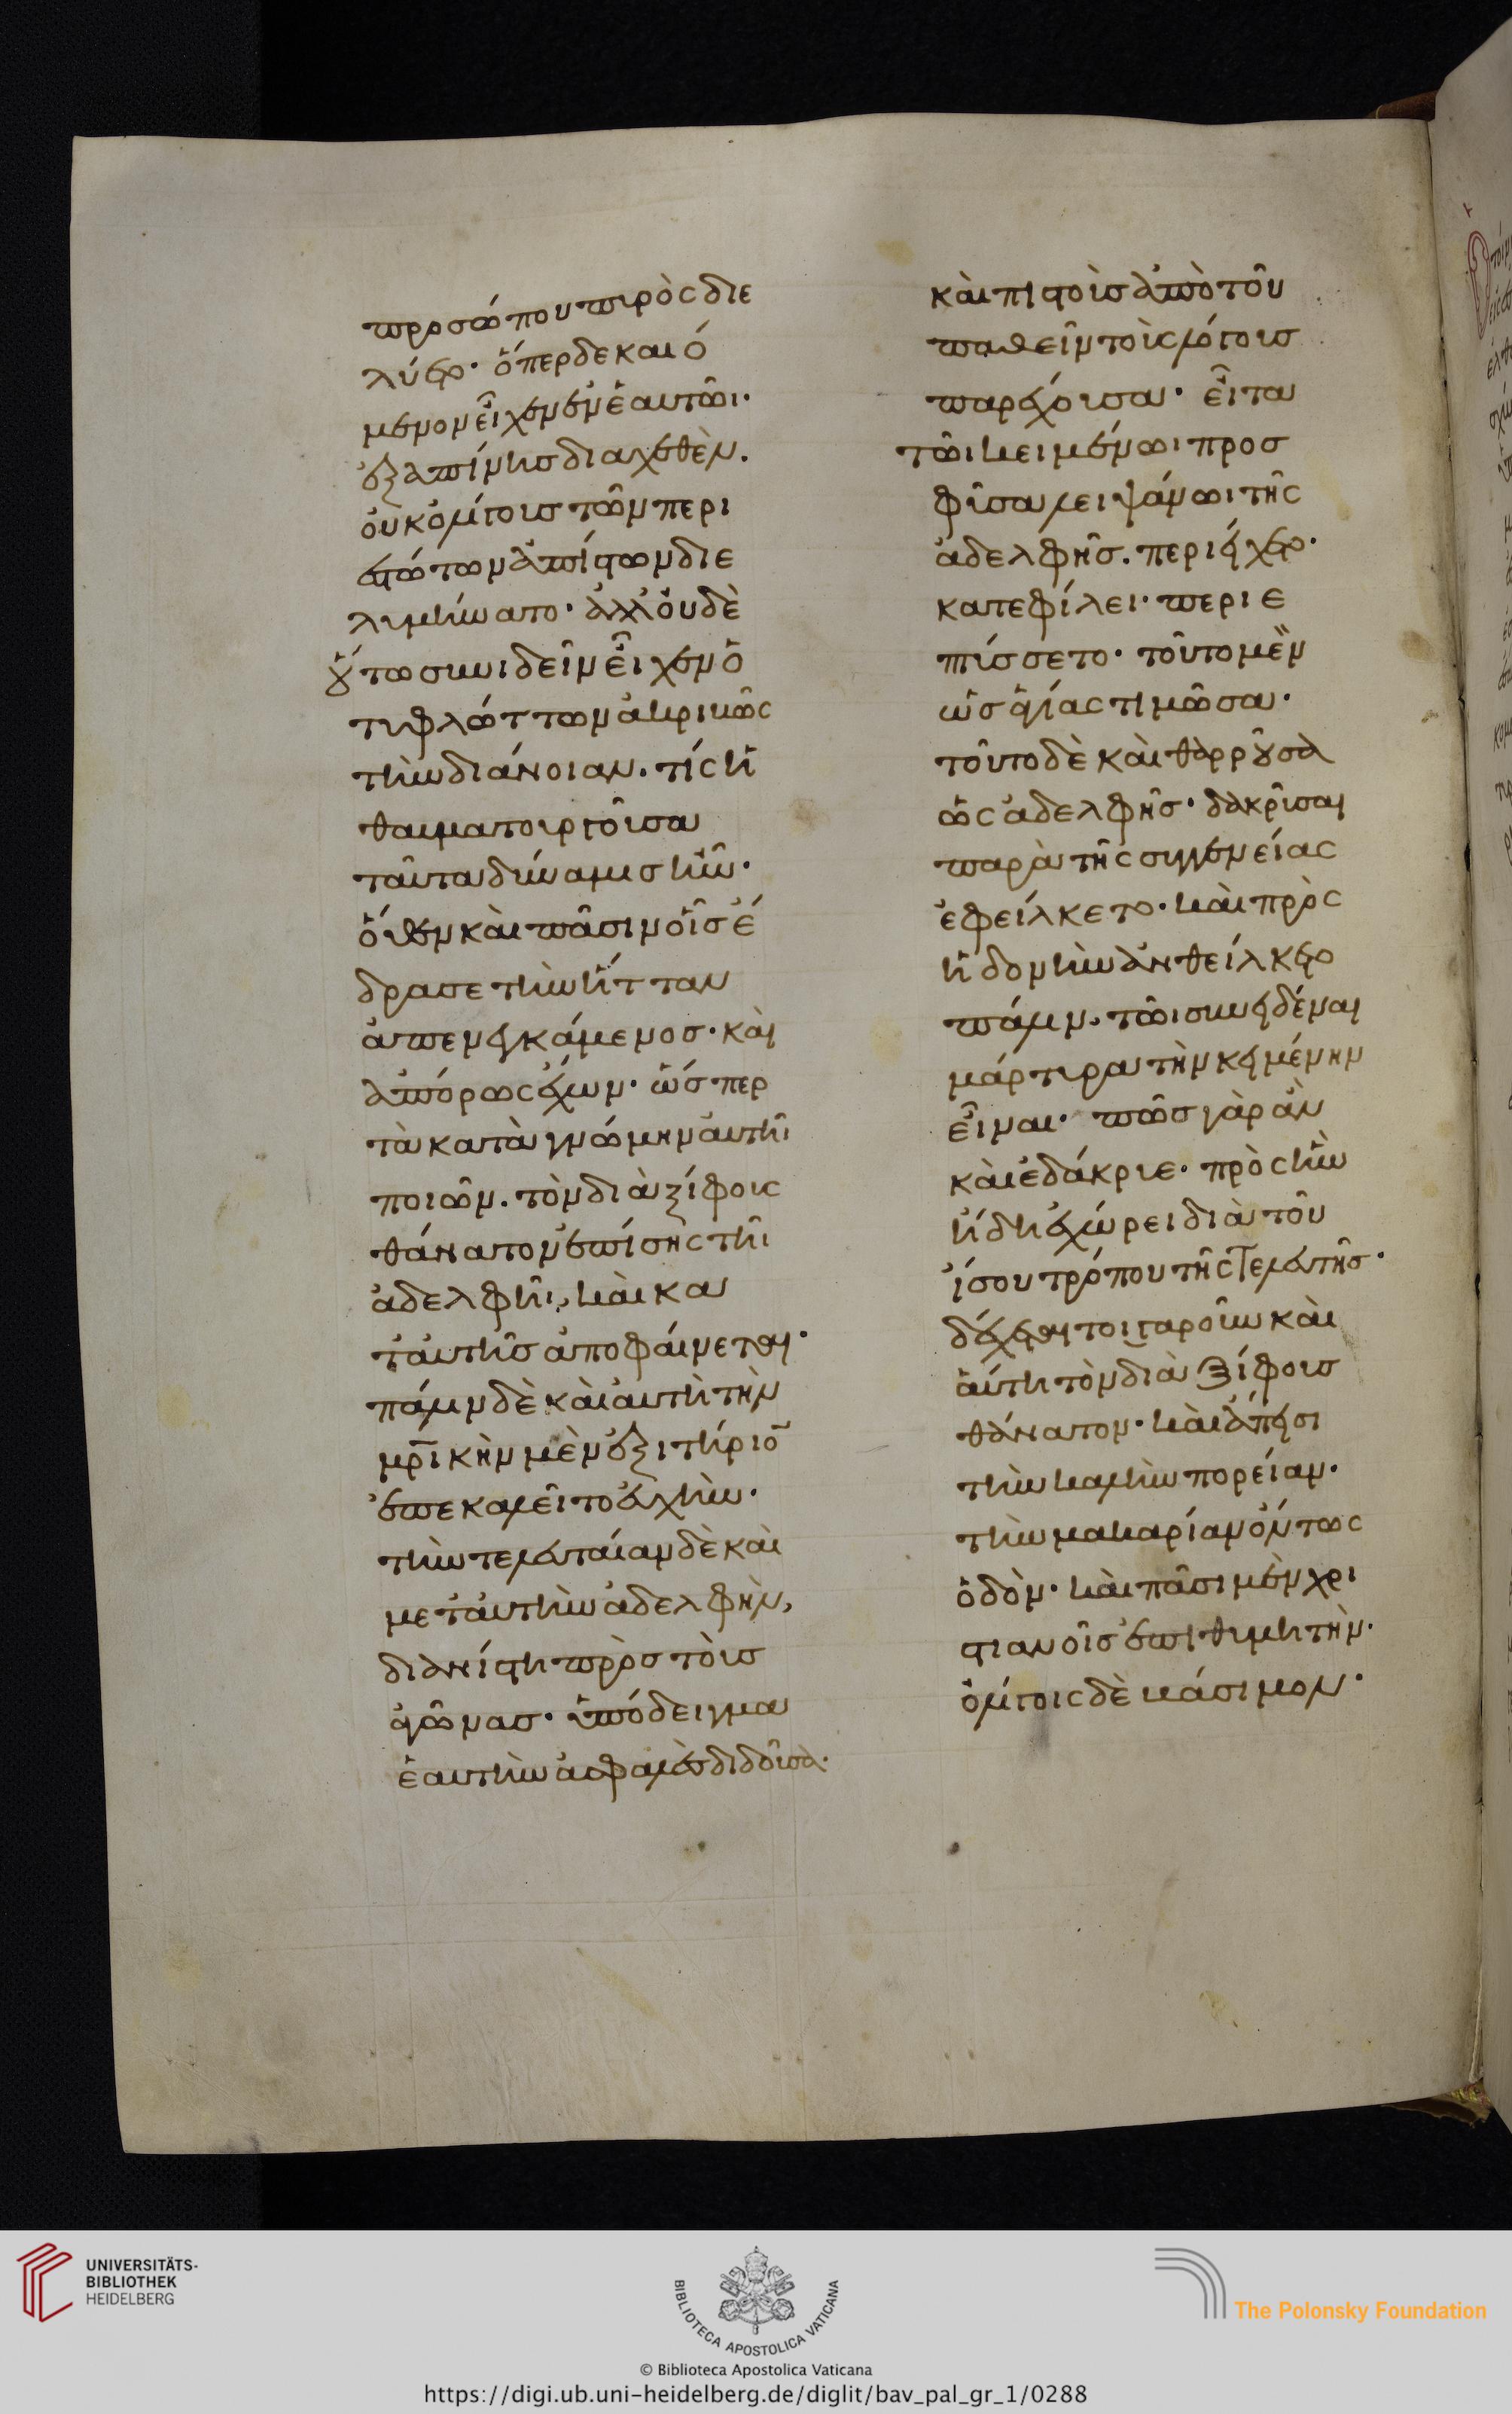 προσώπου πυρὸς διε
λύετο· ὅπερ δε και ὁ
μενον εἶχεν ἐν ἑαυτῶι·
ἐξαπίνης διαχεθὲν.
οὐκ ὀλίγους τῶν περι
εστώτων ἀπίστων διε
λυμήνατο· ἀλλ' οὐδὲ
οὕτω συνιδεῖν εἶχεν ὁ
τυφλώττων ἀκριβῶς
τὴν διάνοιαν. τίς ἡ
θαυματουργοῦσα
ταῦτα δύναμις ἦν·
ὅθεν καὶ πᾶσιν οἷς ἔ
δρασε τὴν ἧτταν
ἀπενεγκάμενος· καὶ
ἀπόρως ἔχων· ὥσπερ
τὰ κατὰ γνώμην αὐτῆι
ποιῶν. τὸν διὰ ξίφους
θάνατον ἐπίσης τῆι
ἀδελφῆι, καὶ κα
τ' αὐτῆς ἀποφαίνεται·
πάλιν δὲ καὶ αὐτὴ τὴν
μρικὴν μὲν ἐξιτήριο
ἐπεκαλεῖτο εὐχὴν·
τὴν τελευταίαν δὲ καὶ
μετ' αὐτὴν ἀδελφὴν,
διανίστη πρὸς τοὺς
ἀγῶνας· ὑπόδειγμα
ἑαυτὴν ἀσφαλὲς διδοῦσα·
καὶ πιστοὺς ἀπὸ τοῦ
παθεῖν τοὺς λόγους
παρέχουσα· εἶτα
τῶι κειμένωι προσ
φῦσα λειψάνωι τῆς
ἀδελφῆς. περιείχετο·
κατεφίλει· περιε
πτύσσετο· τοῦτο μὲν
ὡς ἁγίας τιμῶσα·
τοῦτο δὲ καὶ θαρροῦσα
ὡς ἀδελφῆς· δακρῦσαι
παρὰ τῆς συγγενείας
ἐφείλκετο· καὶ πρὸς
ἡδονὴν ἀνθείλκετο
πάλιν. τῶι συνειδέναι
μάρτυρα τὴν κειμένην
εἶναι· πῶς γὰρ ἂν
καὶ ἐδάκρυε· πρὸς ἣν
ἤδη ἐχώρει διὰ τοῦ
ἴσου τρόπου τῆς τελευτῆς·
δέχεται τοιγαροῦν καὶ
αὕτη τὸν διὰ ξίφους
θάνατον· καὶ ἄπεισι
τὴν καλὴν πορείαν·
τὴν μακαρίαν ὄντως
ὁδὸν· καὶ πᾶσι μὲν χρι
στιανοῖς ἐπιθυμητὴν·
ὀλίγοις δὲ βάσιμον·
UNIVERSITÄTS-
BIBLIOTHEK
HEIDELBERG
BIBLIOTECA APOSTOLICA VATICANA
The Polonsky Foundation
© Biblioteca Apostolica Vaticana
https://digi.ub.uni-heidelberg.de/diglit/bav_pal_gr_1/0288